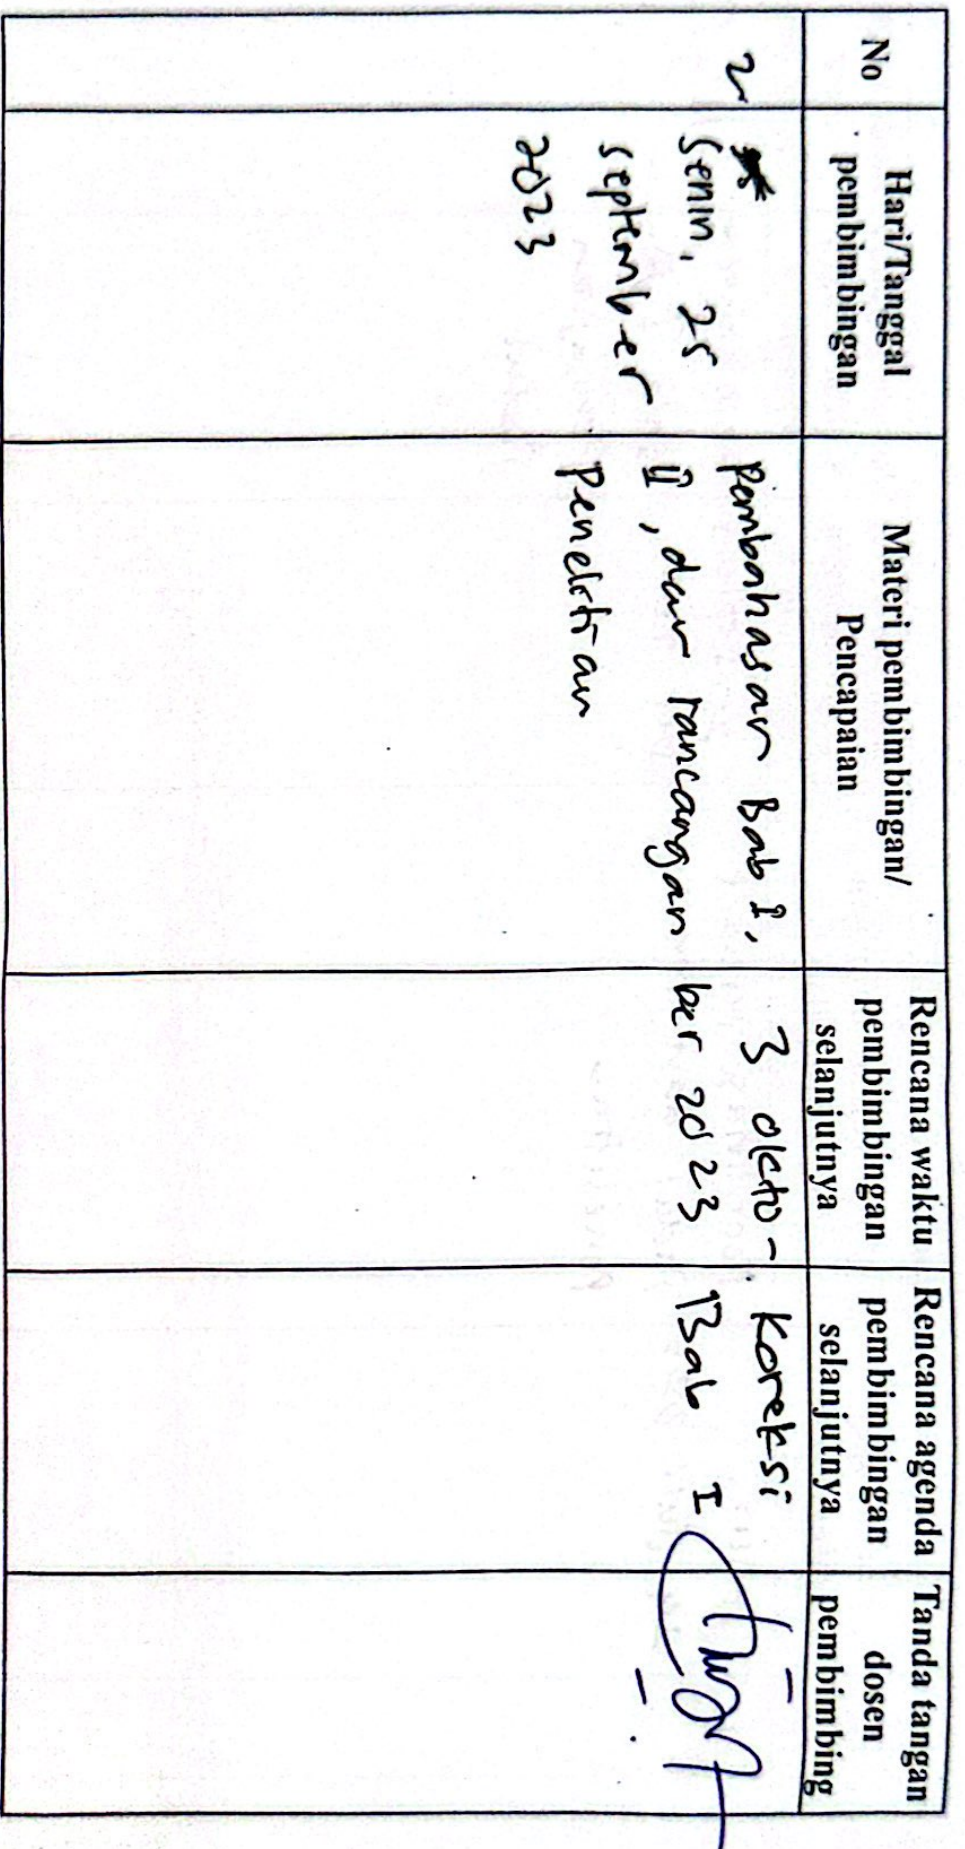 No
Hari/Tanggal
pembimbingan
Materi pembimbingan/
Pencapaian
Rencana waktu
pembimbingan
selanjutnya
Rencana agenda
pembimbingan
selanjutnya
Tanda tangan
dosen
pembimbing
2
Senin, 25
September
2023
Pembahasan Bab I,
II, dan rancangan
Penelitian
3 okto-
ber 2023
Koreksi
Bab I